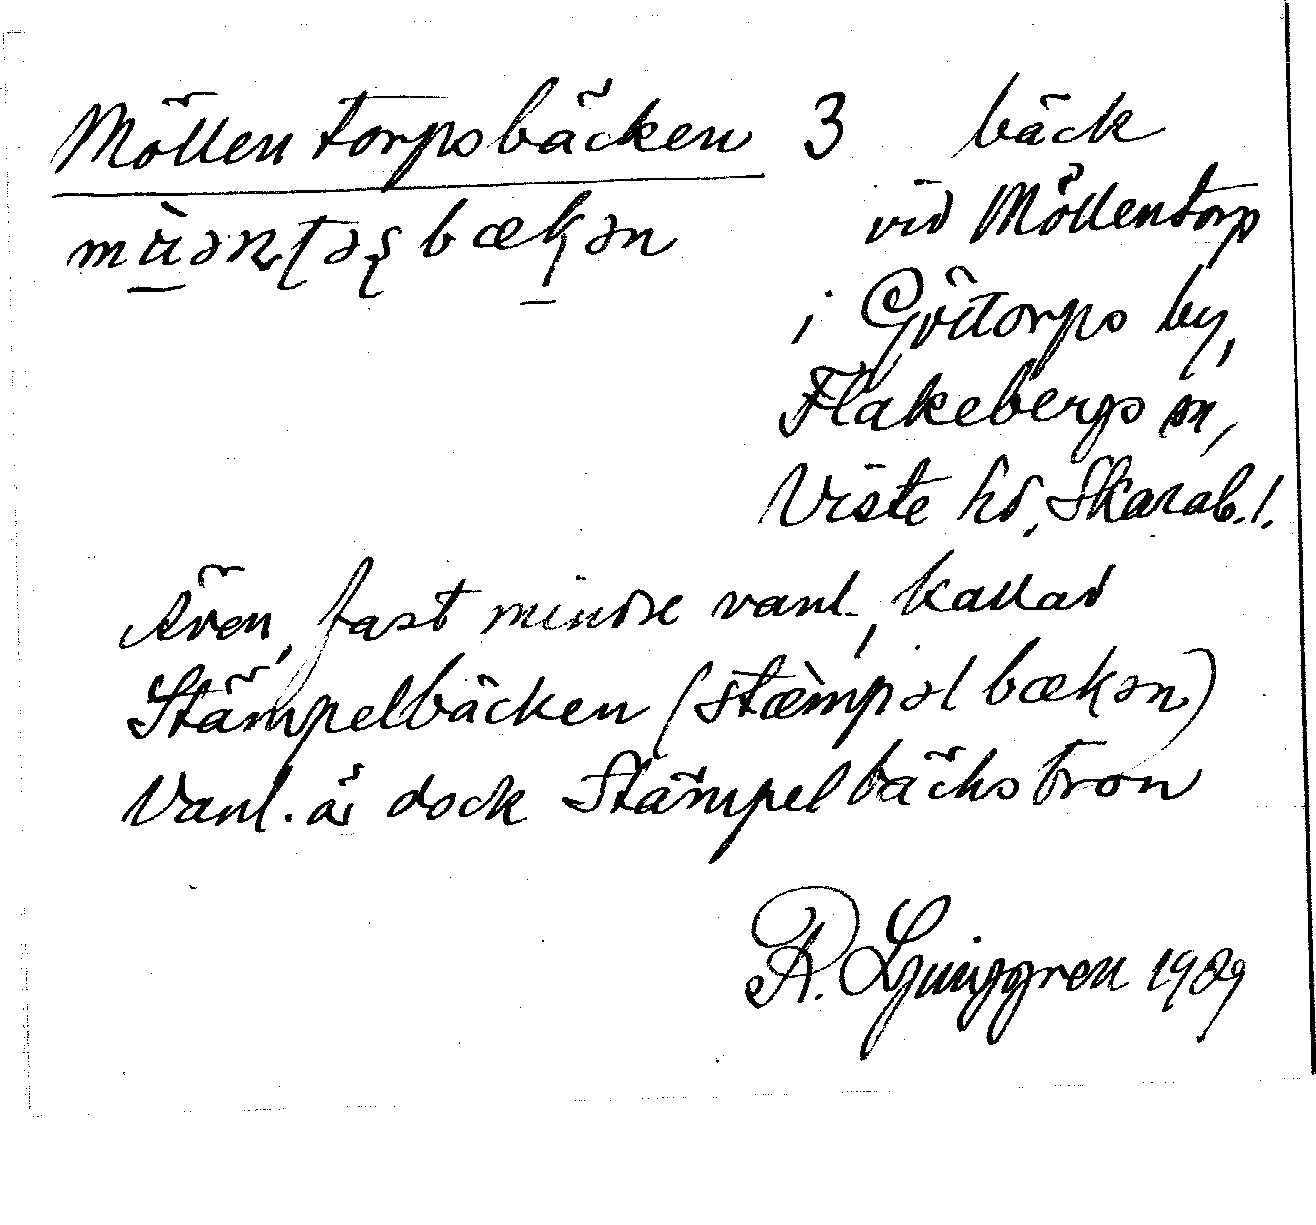 Möllentorpsbäcken 3 bäck
vid Möllentorp
i Götorps by,
Flakebergs sn,
Viste hd, Skarab.l.
Även, fast mindre vanl., kallad
Stämpelbäcken (stæ̀mpəl bækən)
Vanl. är dock Stämpelbäckstron
R. Ljunggren 1989